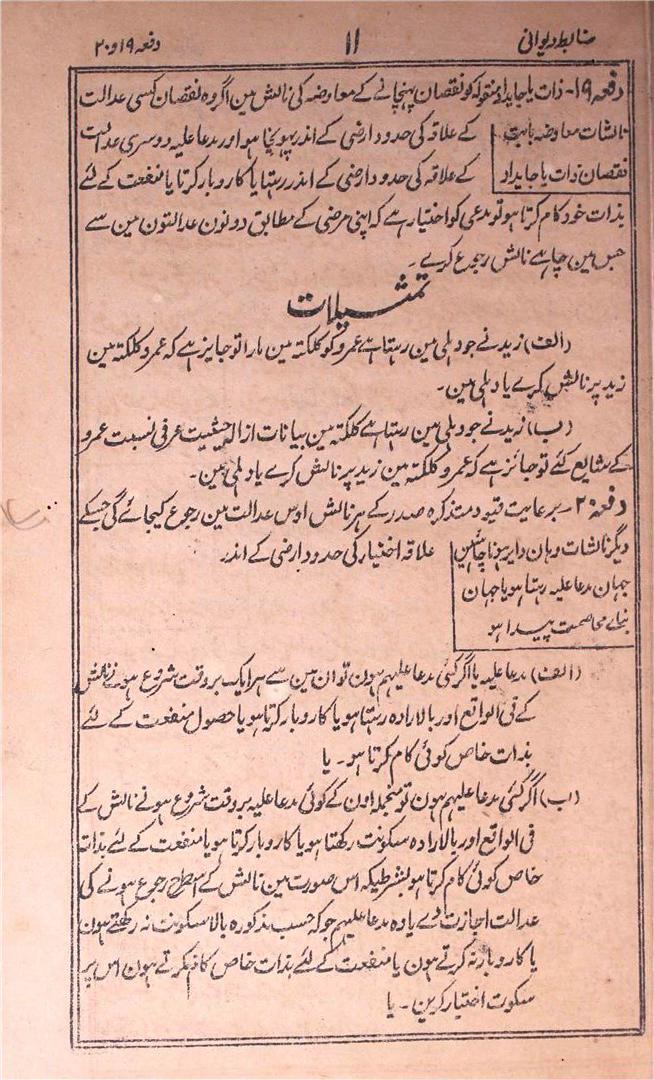 ضابطہ دیوانی
۱۱
دفعہ ۱۹ و ۲۰
دفعہ ۱۹ - ذات یا جایداد منقولہ کو نقصان پہنچانے کے معاوضہ کی نالش مین اگر وہ نقصان کسی عدالت
نالشات معاوضہ بابت
نقصان ذات یا جایداد
کے علاقہ کی حدود ارضی کے اندر پہونچا ہو اور مدعا علیہ دوسری عدالت
کے علاقہ کی حدود ارضی کے اندر رہتا یا کاروبار کرتا یا منفعت کے لئے
بذات خود کام کرتا ہو تو مدعی کو اختیار ہے کہ اپنی مرضی کے مطابق دونون عدالتون مین سے
جس مین چاہے نالش رجوع کرے۔
تمثیلات
(الف) زید نے جو دہلی مین رہتا ہے عمرو کو کلکتہ مین مارا تو جایز ہے کہ عمرو کلکتہ مین
زید پر نالش کرے یا دہلی مین۔
(ب) زید نے جو دہلی مین رہتا ہے کلکتہ مین بیانات ازالہ حیثیت عرفی نسبت عمرو
کے شایع کئے تو جائز ہے کہ عمرو کلکتہ مین زید پر نالش کرے یا دہلی مین۔
دفعہ ۲۰ - بر عایت قیود متذکرہ صدر کے ہر نالش اوس عدالت مین رجوع کیجائے گی جسکے
دیگر نالشات وہان دایر ہونا چاہئین
جہان مدعا علیہ رہتا ہو یا جہان
بنائے مخاصمت پیدا ہو
علاقہ اختیار کی حدود ارضی کے اندر
(الف) مدعا علیہ یا اگر کئی مدعا علیہم ہون تو ان مین سے ہر ایک بر وقت شروع ہونے نالش
کے فی الواقع اور بالارادہ رہتا ہو یا کاروبار کرتا ہو یا حصول منفعت کے لئے
بذات خاص کوئی کام کرتا ہو۔ یا
(ب) اگر کئی مدعا علیہم ہون تو منجملہ اون کے کوئی مدعا علیہ بر وقت شروع ہونے نالش کے
فی الواقع اور بالارادہ سکونت رکھتا ہو یا کاروبار کرتا ہو یا منفعت کے لئے بذات
خاص کوئی کام کرتا ہو بشرطیکہ اس صورت مین نالش کے اسطرح رجوع ہونے کی
عدالت اجازت دے یا وہ مدعا علیہم جو کہ حسب مذکورہ بالا سکونت نہ رکھتے ہون
یا کاروبار نہ کرتے ہون یا منفعت کے لئے بذات خاص کام نہ کرتے ہون اس پر
سکوت اختیار کرین۔ یا